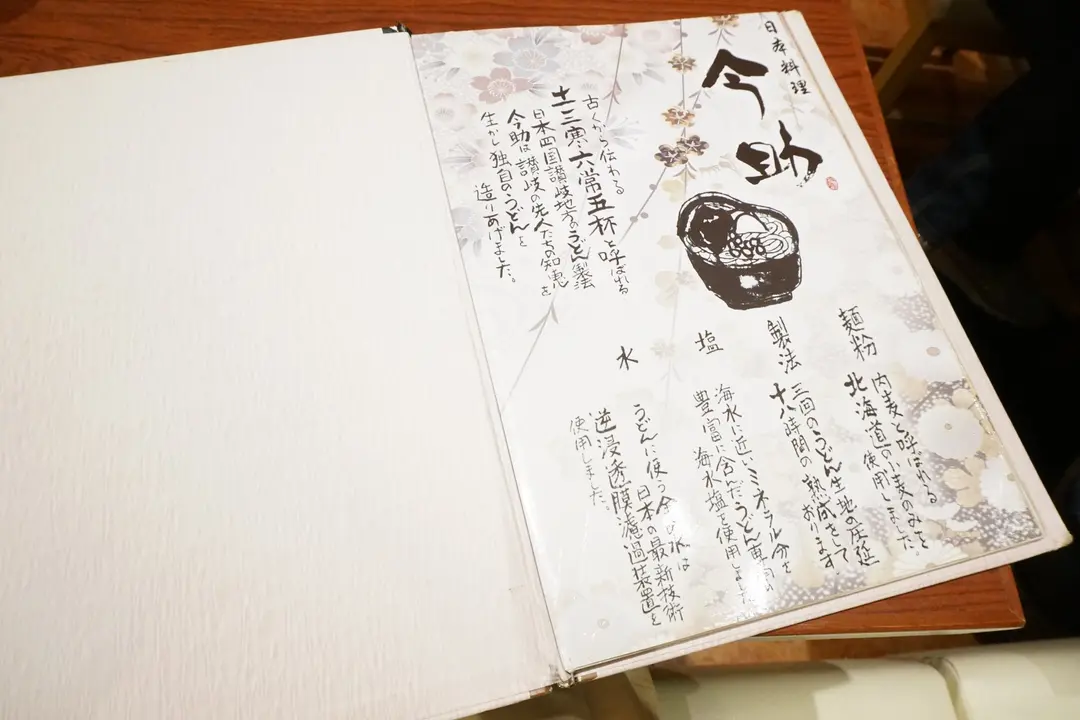 日本料理
今助
古くから伝わる
土三寒六常五杯と呼ばれる
日本四国讃岐地方のうどん製法
今助は讃岐の先人たちの知恵を
生かし独自のうどんを
造りあげました。
麺粉
内麦と呼ばれる
北海道の小麦のみを
使用しました。
製法
三回のうどん生地の圧延
十八時間の熟成をして
おります
塩
海水に近いミネラル分を
豊富に含んだうどん専用の
海水塩を使用しました
水
うどんに使う全ての水は
日本の最新技術
逆浸透膜濾過装置を
使用しました。